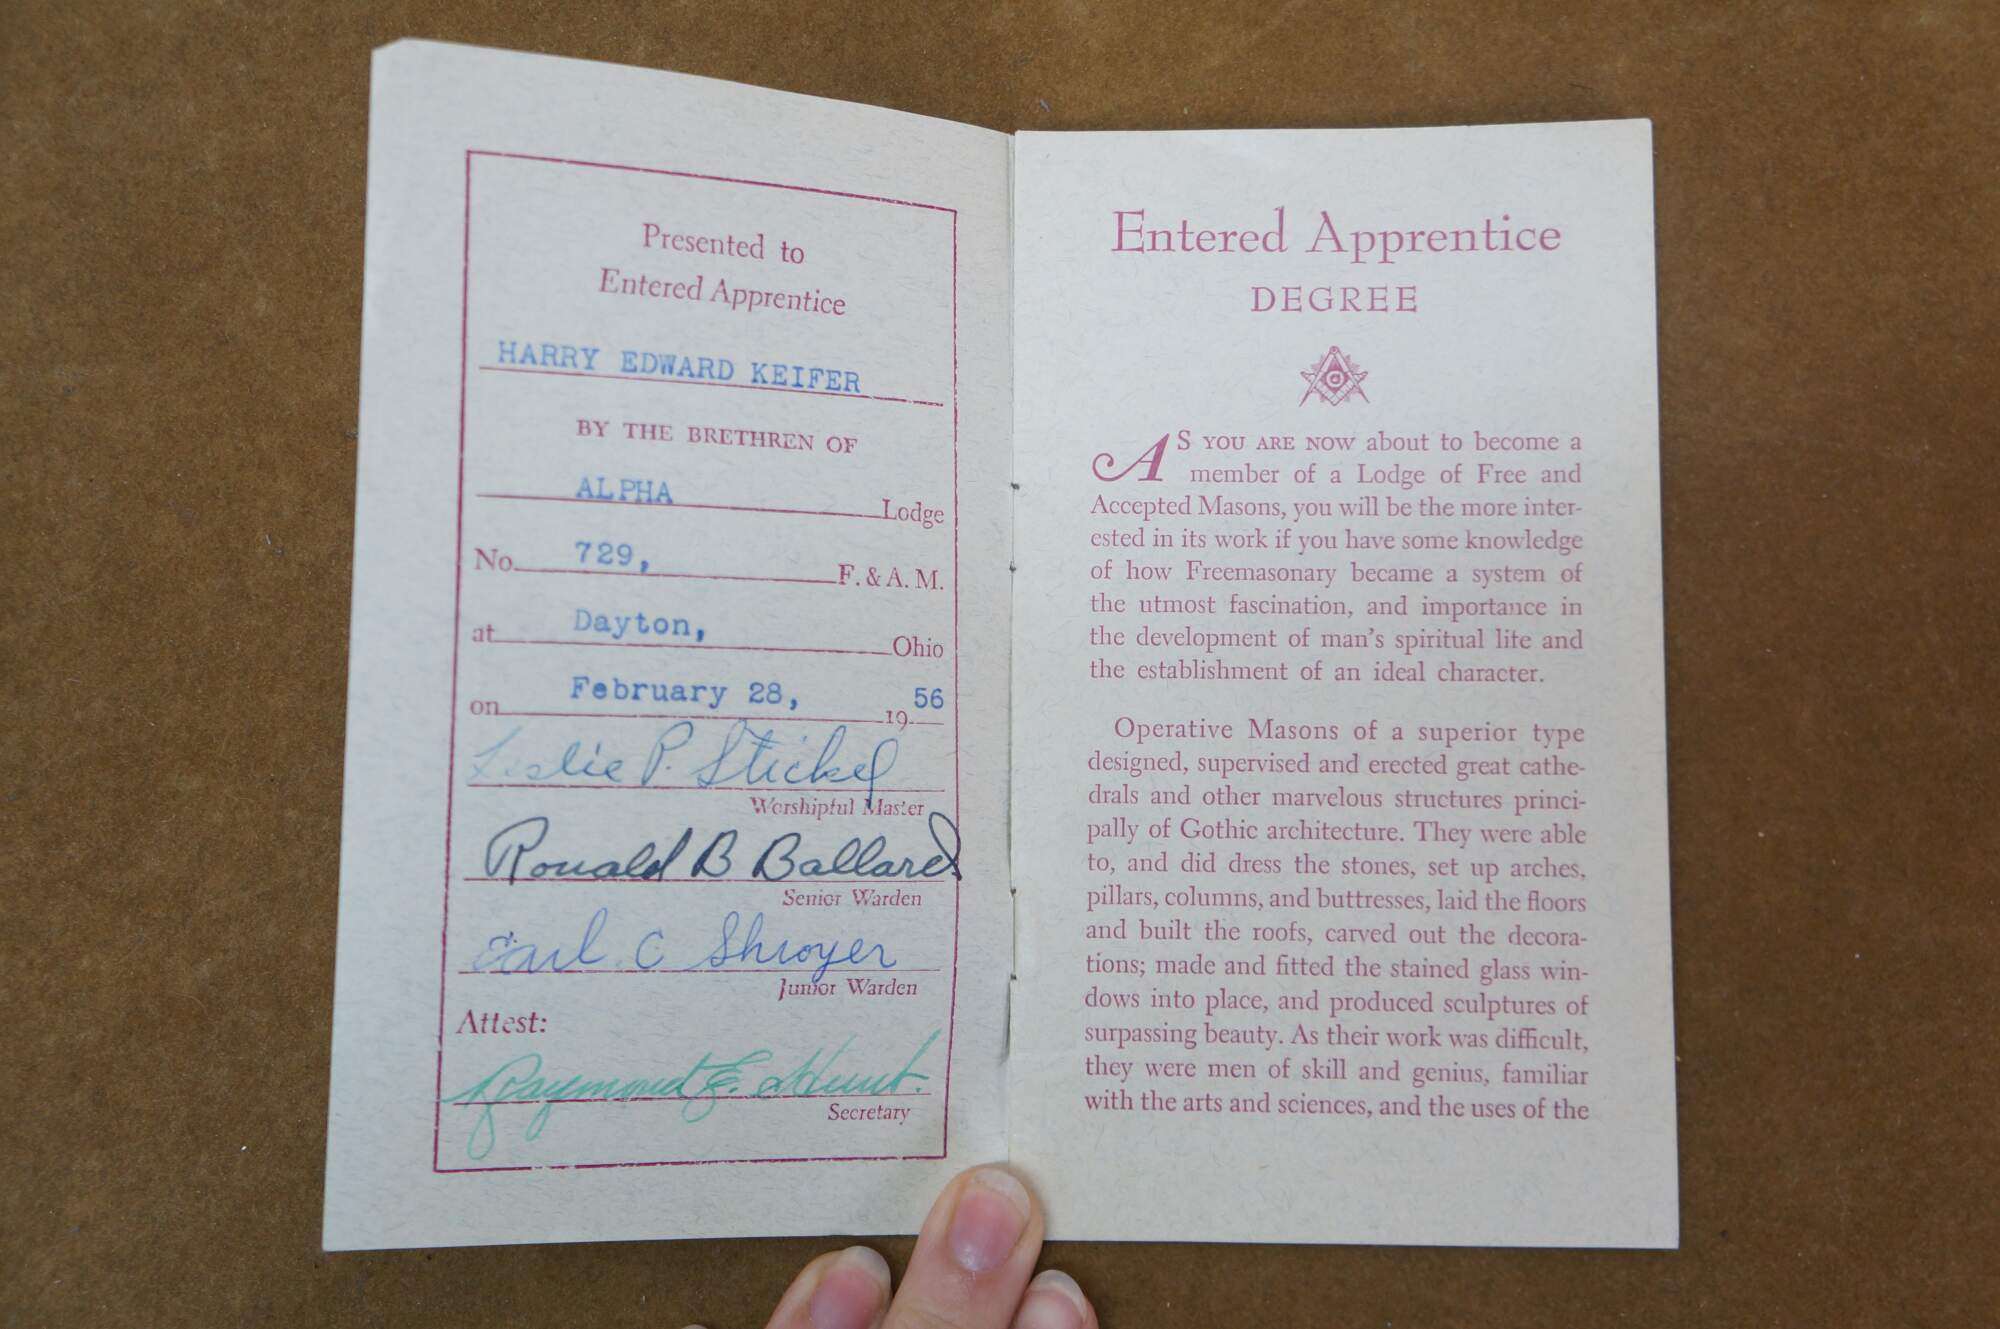 Presented to
Entered Apprentice
HARRY EDWARD KEIFER
BY THE BRETHREN OF
ALPHA Lodge
No. 729, F. & A. M.
at Dayton, Ohio
on February 28, 1956
Leslie P. Stickel
Worshipful Master
Ronald B Ballard
Senior Warden
Earl C Shroyer
Junior Warden
Attest:
Raymond E. Hunt.
Secretary
Entered Apprentice
DEGREE
G
AS YOU ARE NOW about to become a
member of a Lodge of Free and
Accepted Masons, you will be the more inter-
ested in its work if you have some knowledge
of how Freemasonary became a system of
the utmost fascination, and importance in
the development of man's spiritual life and
the establishment of an ideal character.
Operative Masons of a superior type
designed, supervised and erected great cathe-
drals and other marvelous structures princi-
pally of Gothic architecture. They were able
to, and did dress the stones, set up arches,
pillars, columns, and buttresses, laid the floors
and built the roofs, carved out the decora-
tions; made and fitted the stained glass win-
dows into place, and produced sculptures of
surpassing beauty. As their work was difficult,
they were men of skill and genius, familiar
with the arts and sciences, and the uses of the